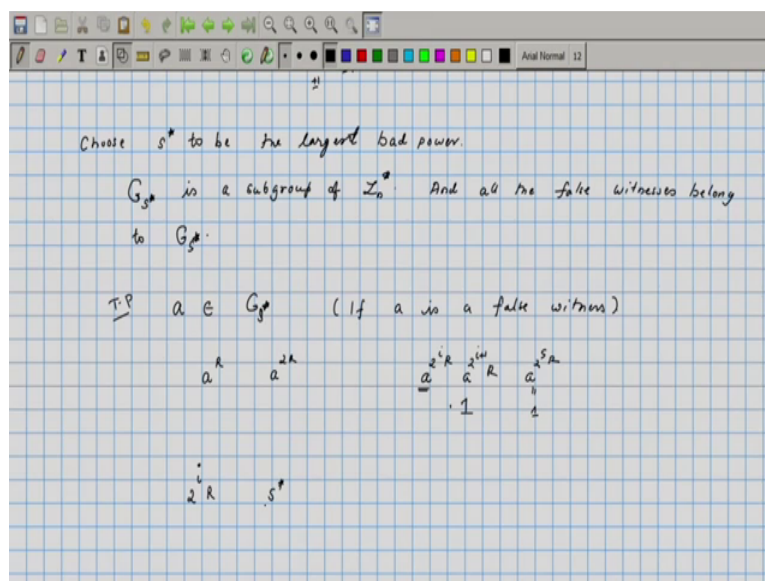 T Arial Normal 12
Choose s* to be the largest bad power.
G_s* is a subgroup of Z_n*. And all the false witnesses belong
to G_s*.
T.P a ∈ G_s* (If a is a false witness)
a^R a^{2R} a^{2^i R} a^{2^{i+1} R} a^{2^s R}
. 1 " 1
2^i R s*